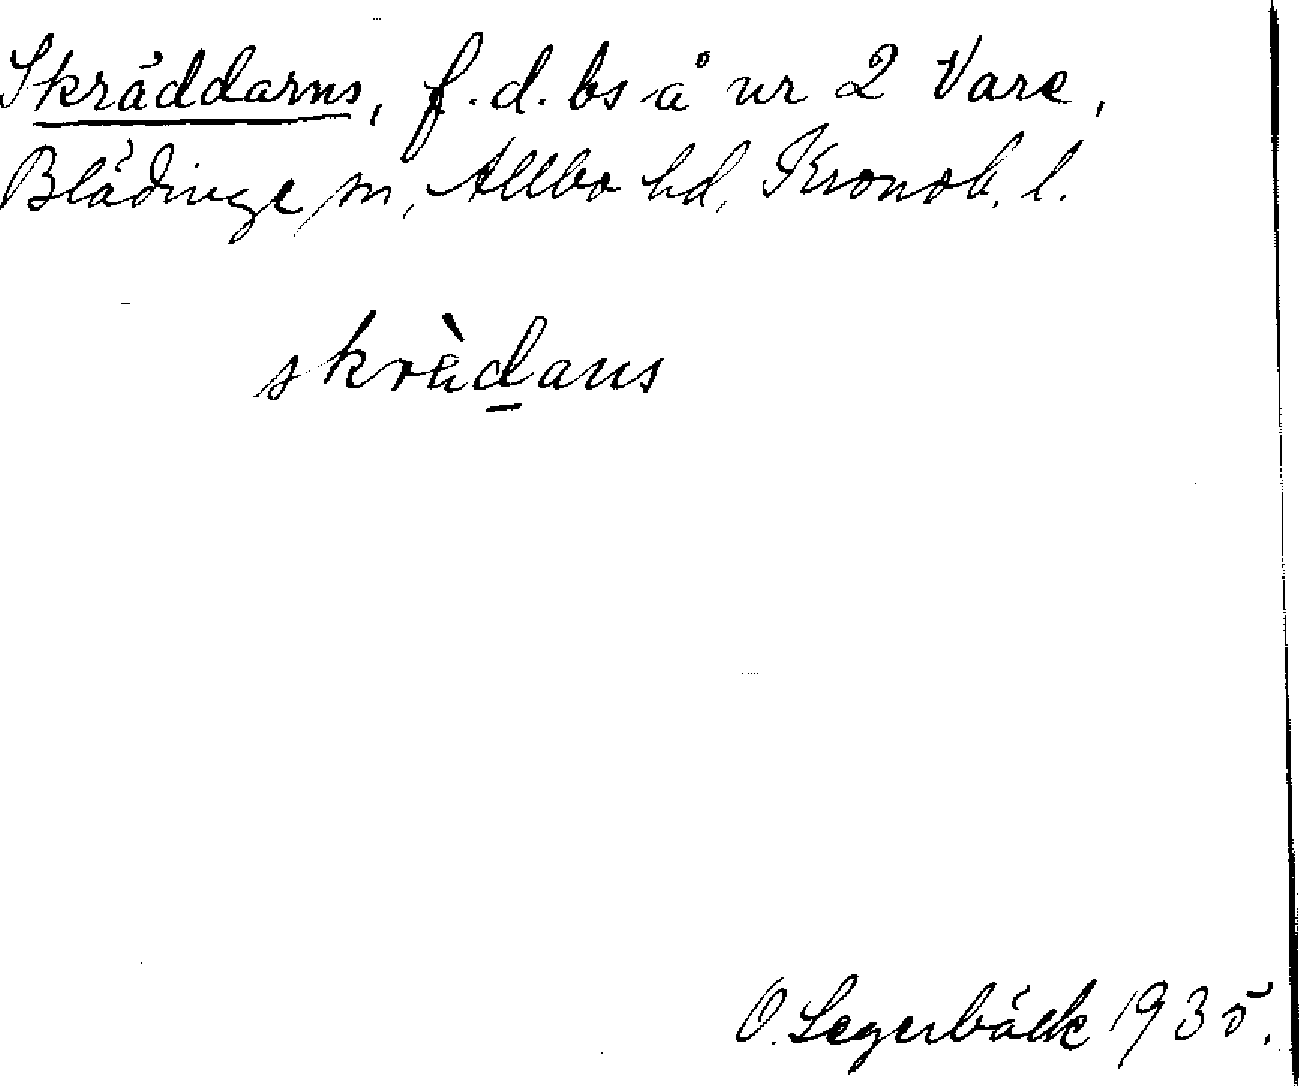 Skräddarns, f.d. bs å nr 2 Vare,
Blädinge sn, Allbo hd, Kronob. l.
skrὰd̲ans
O. Segerbäck 1935.